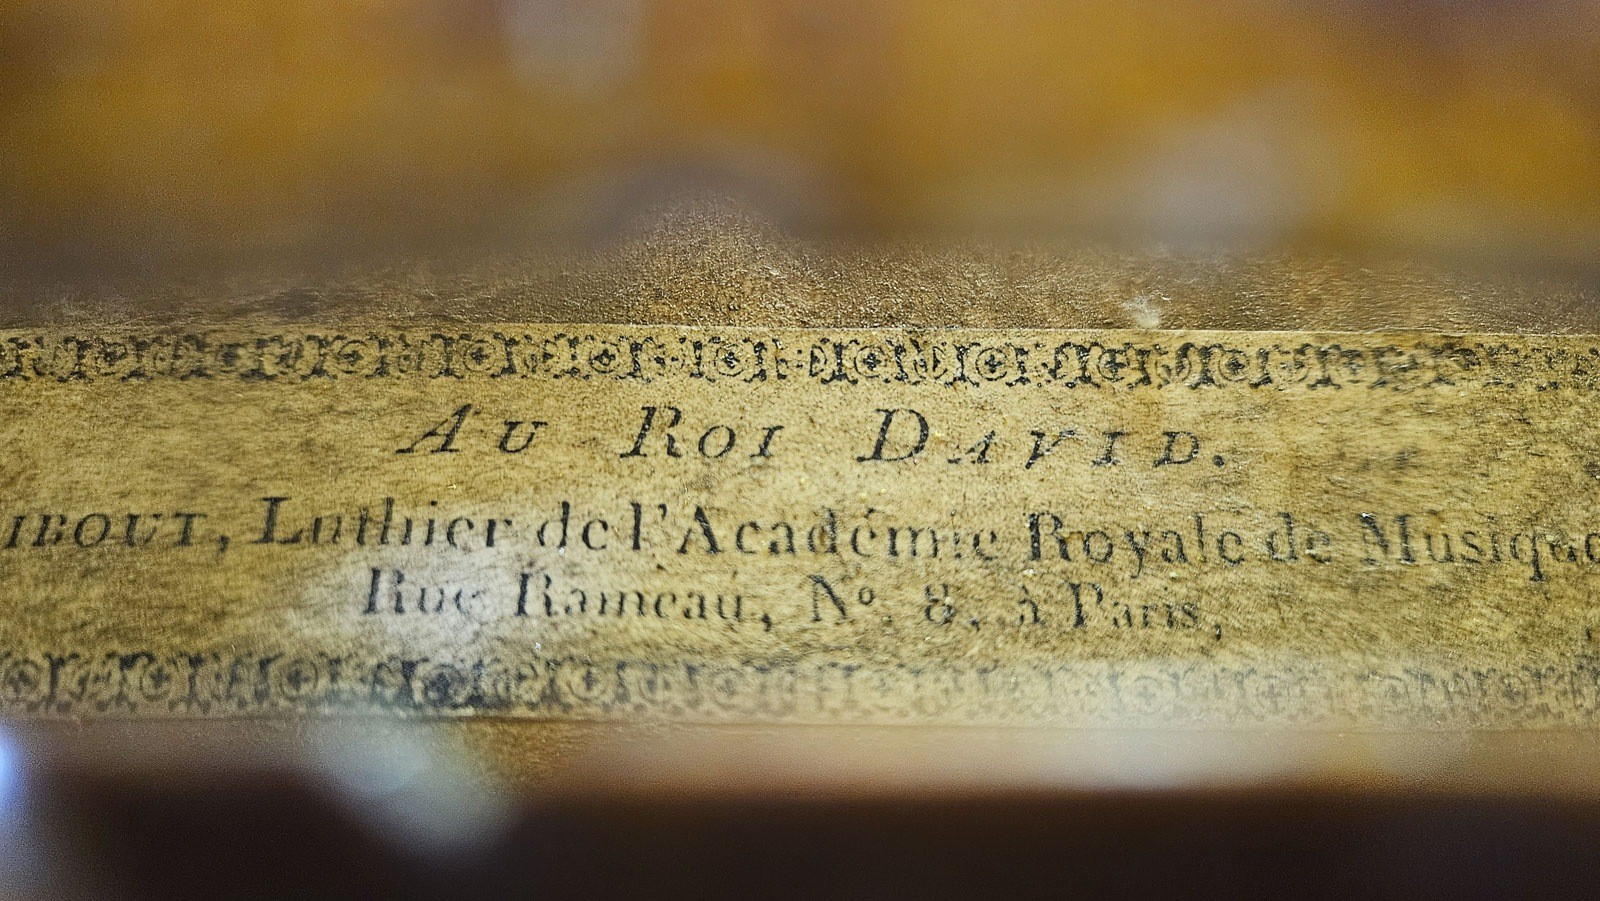 AU ROI DAVID.
IBOUT, Luthier de l'Académie Royale de Musique
Rue Rameau, Nº. 8, à Paris,